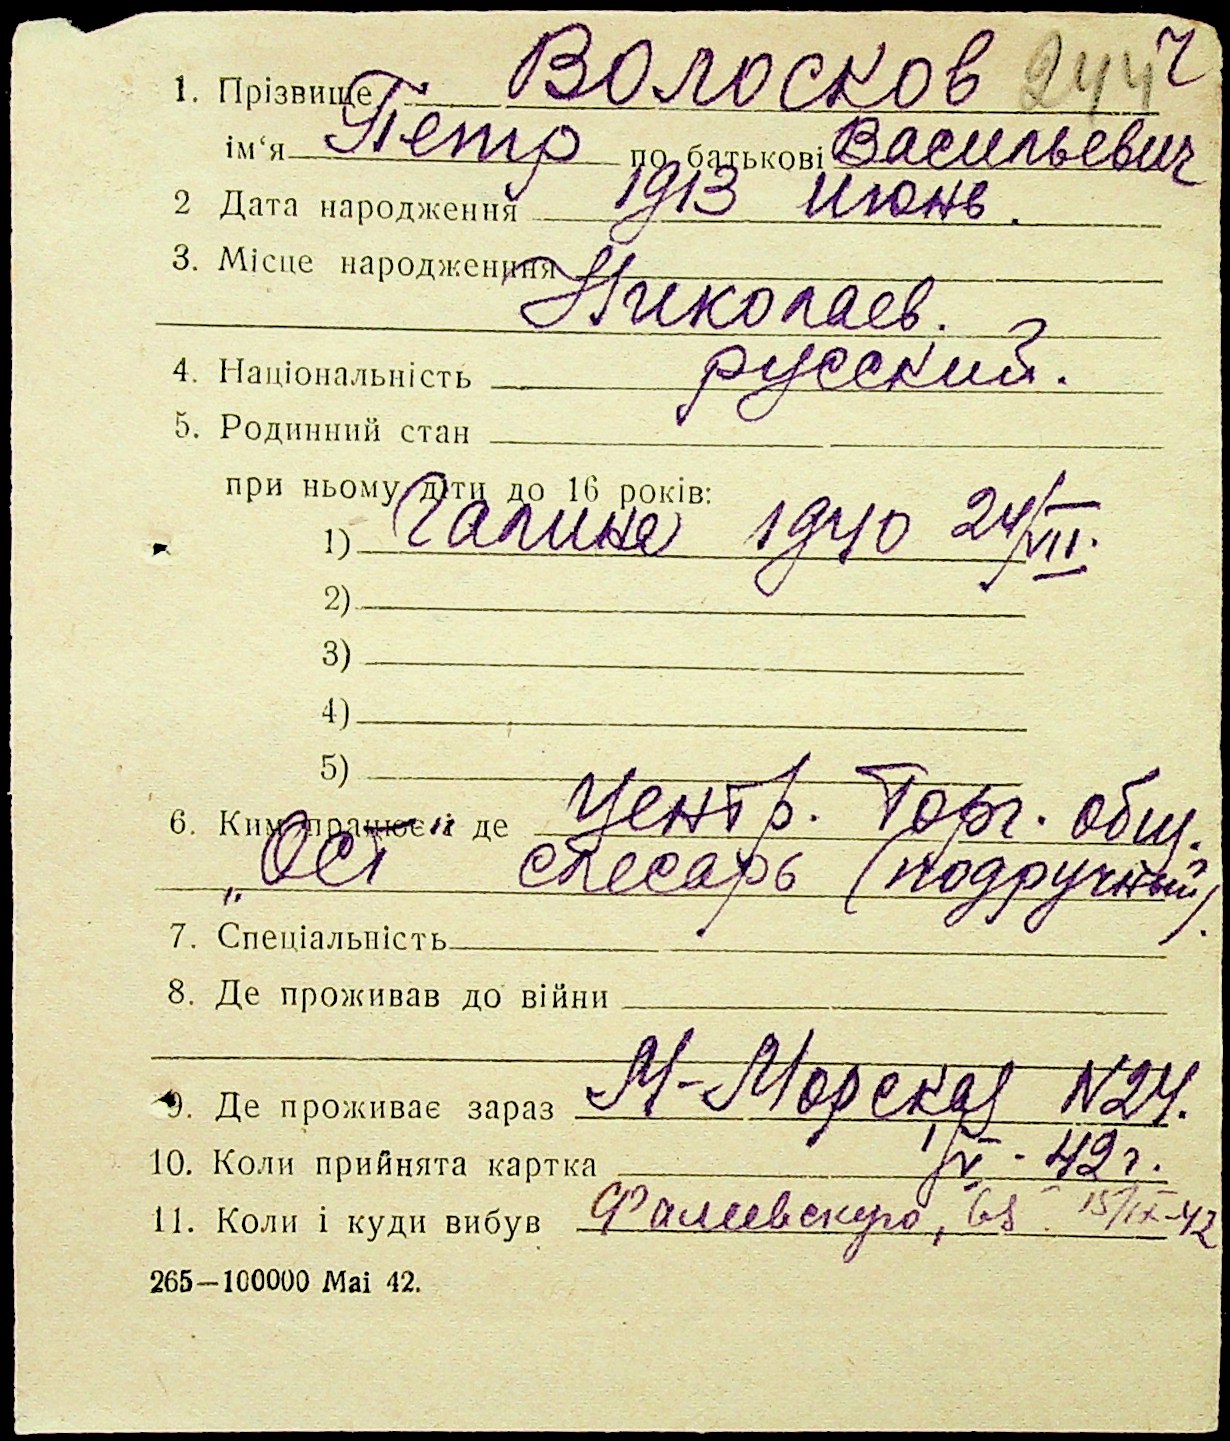 1. Прізвище Волосков 244 ч
ім'я Петр по батькові Васильевич
2 Дата народження 1913 июнь.
3. Місце народженння
Николаев.
4. Національність русский.
5. Родинний стан
при ньому діти до 16 років:
1) Галина 1940 24/VII.
2)
3)
4)
5)
6. Ким працює і де Центр. Торг. общ.
„Ост" слесарь (подручный).
7. Спеціальність
8. Де проживав до війни
9. Де проживає зараз М-Морская N24.
10. Коли прийнята картка 1/V - 42 г.
11. Коли і куди вибув Фалиевскую, 15/IX-42
265—100000 Mai 42.